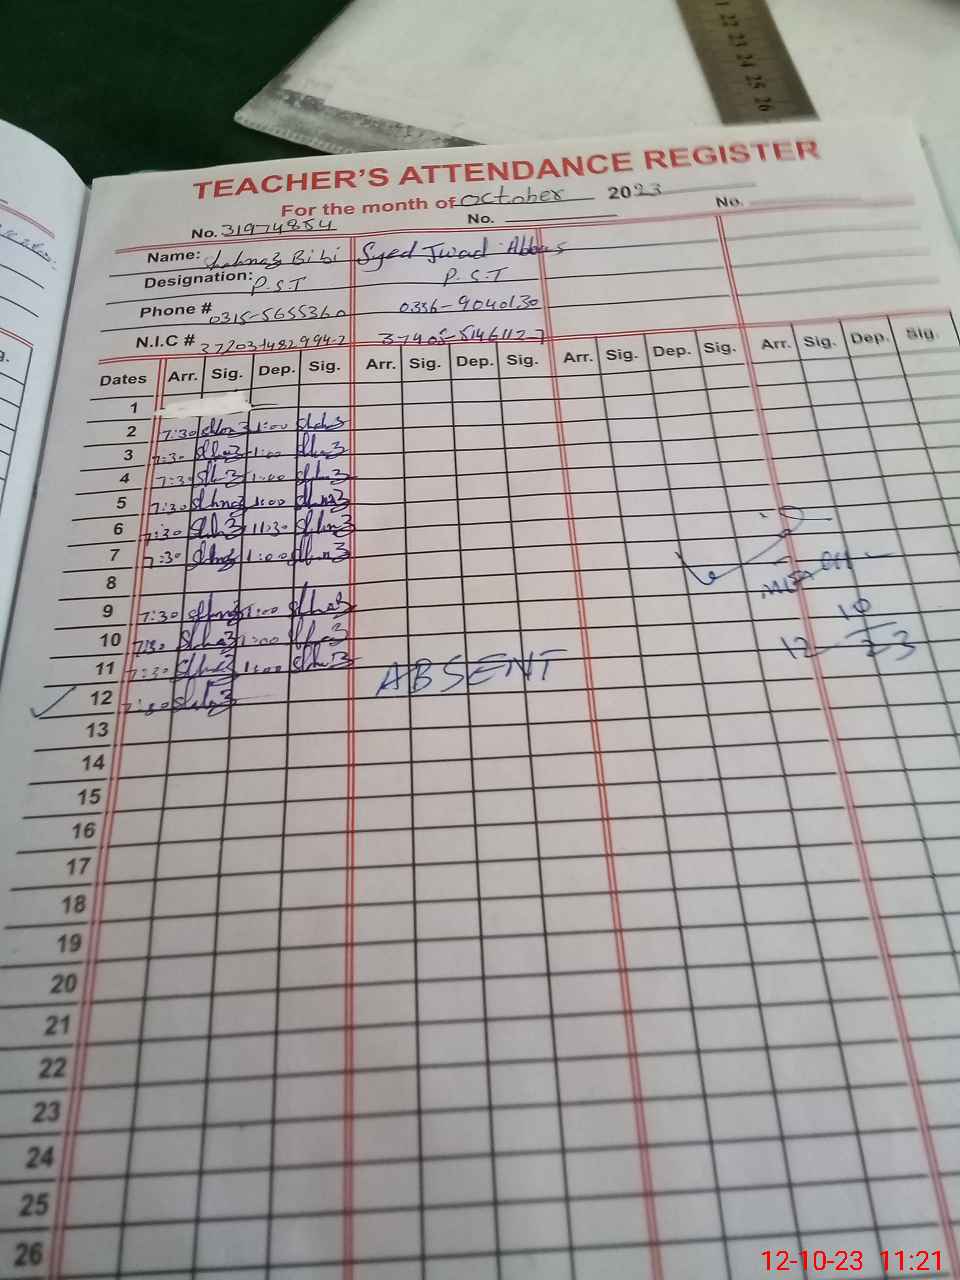 1 22 23 24 25 26
TEACHER'S ATTENDANCE REGISTER
For the month of October 2023
No. 31974854 No. No.
Name: Shahnaz Bibi Syed Jwad Abbas
Designation: P.S.T P.S.T
Phone # 0315-5655360 0336-9040130
N.I.C #
Dates Arr. Sig. Dep. Sig. Arr. Sig. Dep. Sig. Arr. Sig. Dep. Sig. Arr. Sig. Dep. Sig.
1
2 7:30 1:00
3 7:30 1:00
4 7:30 1:00
5 7:30 1:00
6 7:30 11:30
7 7:30 1:00
8
9 7:30 1:00
10 7:30 1:00
11 7:30 1:00 ABSENT
12 7:30
10
12 23
13
14
15
16
17
18
19
20
21
22
23
24
25
26
12-10-23 11:21